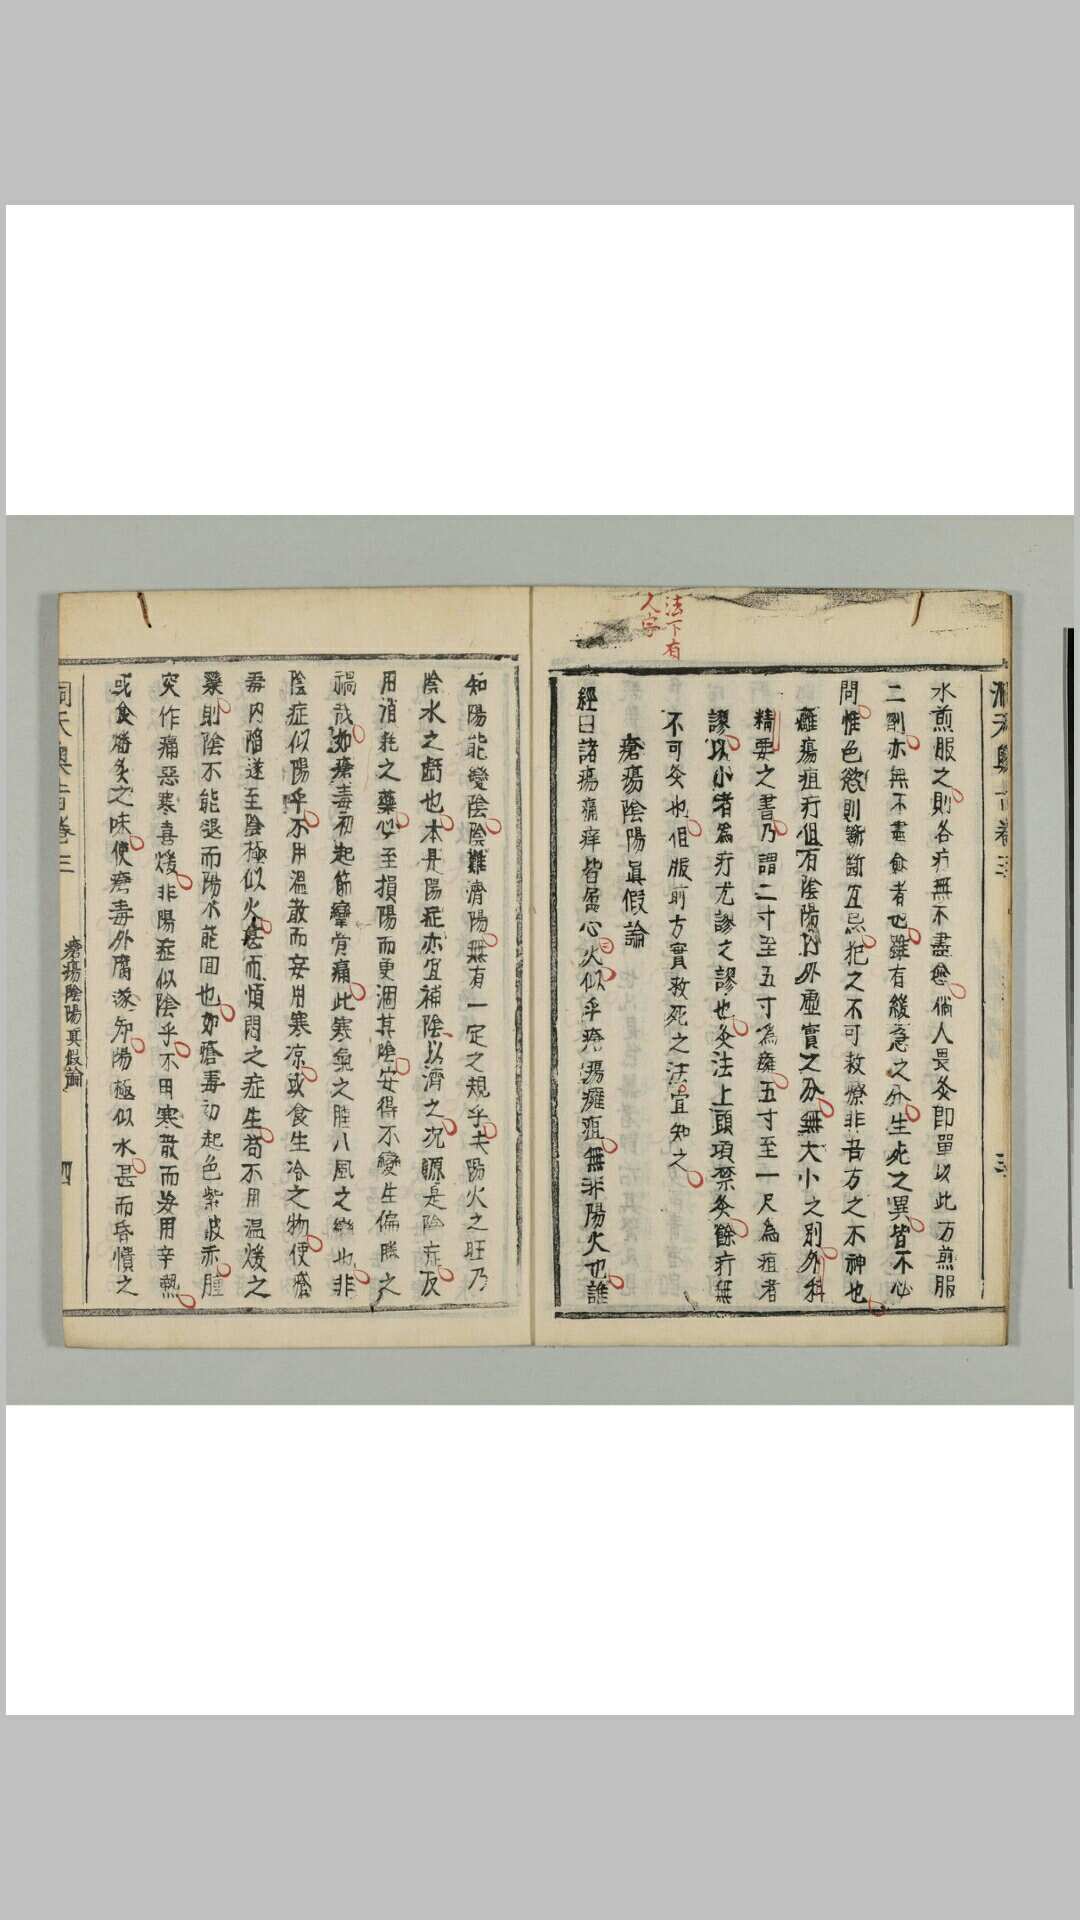 法下有
人字
水煎服之則各疔無不盡愈倘人畏灸即單以此方煎服
二劑亦無不盡愈者也雖有緩急之分生死之異皆不必
問惟色慾則斷斷宜忌犯之不可救療非吾方之不神也
癰瘍疽疔但有陰陽內外虛實之分無大小之別外科
精要之書乃謂二寸至五寸為癰五寸至一尺為疽者
謬以小者為疔尤謬之謬也灸法上頭項禁灸餘疔無
不可灸也但服前方實救死之法宜知之
瘡瘍陰陽真假論
經曰諸瘍痛痒皆屬心火似乎瘡瘍癰疽無非陽火也誰
知陽能變陰陰難濟陽無有一定之規乎夫陽火之旺乃
陰水之虧也本是陽症亦宜補陰以濟之況源是陰症反
用消耗之藥必至損陽而更涸其陰安得不變生偏勝之
禍哉如瘡毒初起筋攣骨痛此寒氣之 八風之變也非
陰症似陽乎不用溫散而妄用寒涼或食生冷之物使瘡
毒內陷遂至陰極似火甚而煩悶之症生苟不用温煖之
藥則陰不能退而陽不能回也如瘡毒初起色紫皮赤腫
突作痛惡寒喜煖非陽症似陰乎不用寒散而妄用辛熱
或食燔炙之味使瘡毒外腐遂 陽極似水甚而昏憒之
洞天奧旨卷三
瘡瘍陰陽真假論
四